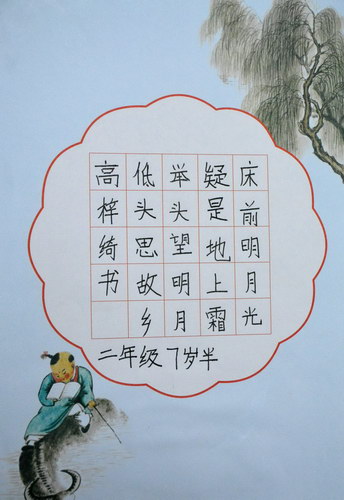 床前明月光
疑是地上霜
举头望明月
低头思故乡
高梓绮书
二年级 7岁半